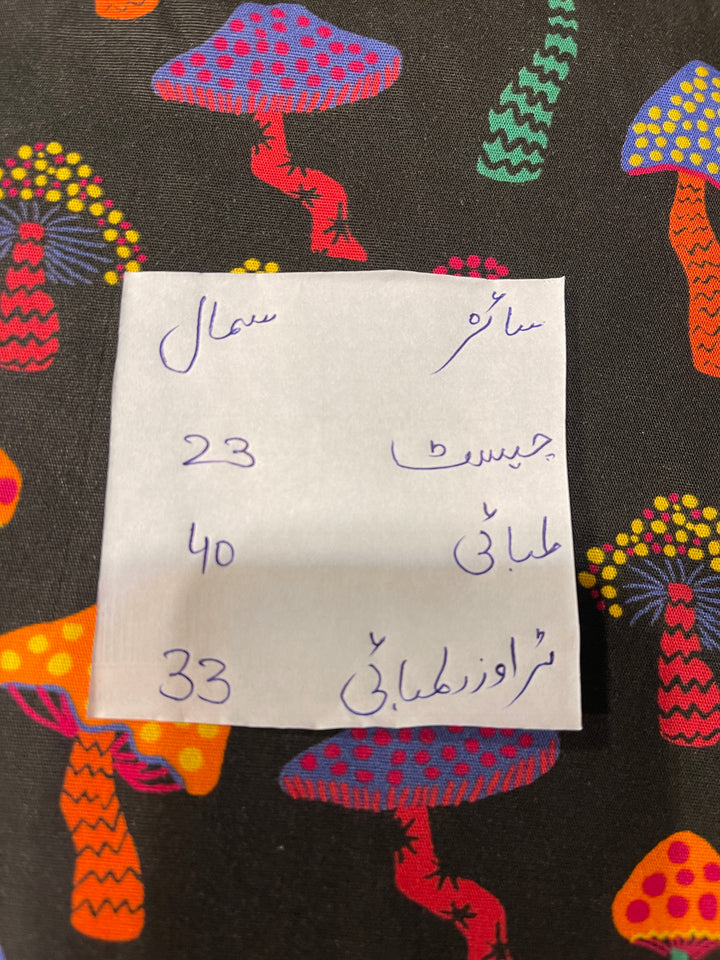 سائز سمال
چیسٹ 23
لمبائی 40
ٹراوزر لمبائی 33